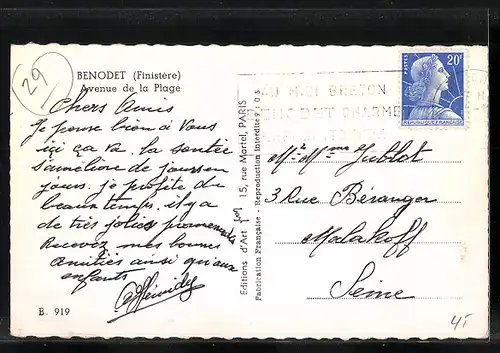 29
BENODET (Finistère)
Avenue de la Plage
Chers Amis
Je pense bien à Vous
ici ça va. la santée
s'améliore de jours en
jours. je profite du
beaux temps. il y a
de très jolies promenades
Recevez mes bonnes
Amitiés ainsi qu'aux
enfants.
B. 919
Editions d'Art 15, rue Martel, PARIS
Fabrication Française - Reproduction interdite
AU MIDI BRETON
BENODET CHARME
POSTES 20F
REPUBLIQUE FRANÇAISE
Mr & Mme
3 Rue Béranger
Malakoff
Seine